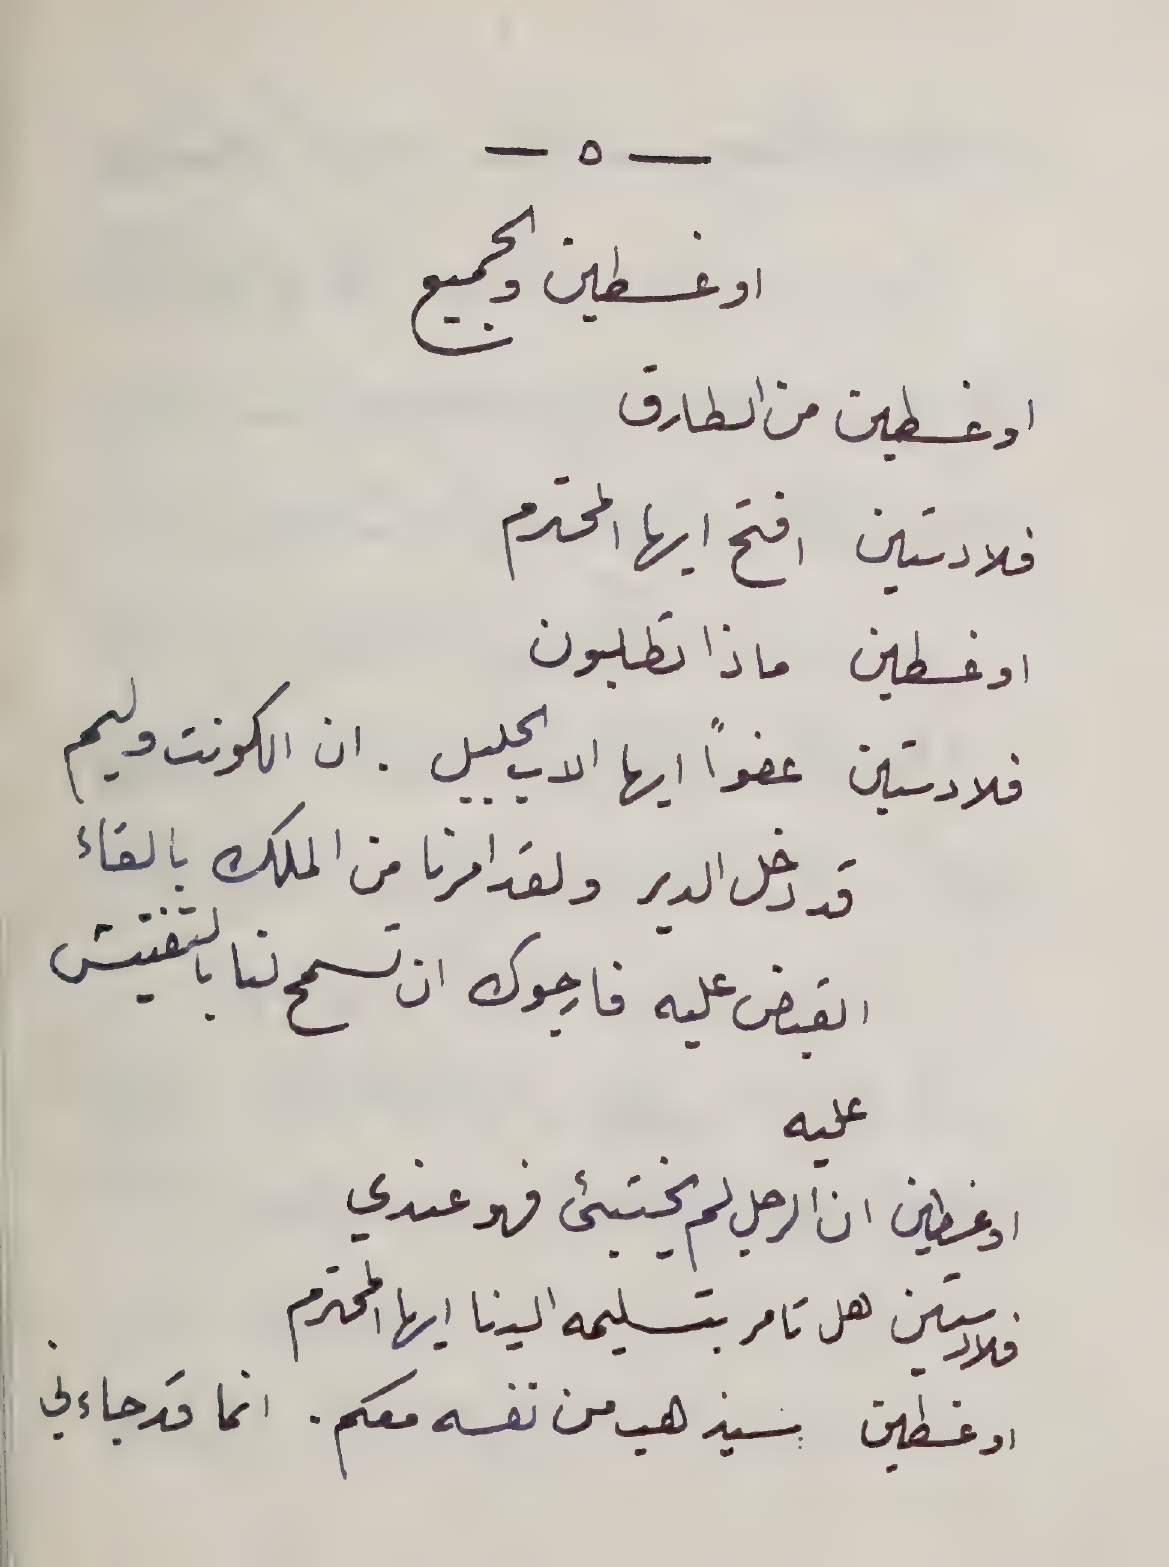 — ٥ —
اوغسطين والجميع
اوغسطين من الطارق
فلادستين افتح ايها المحترم
اوغسطين ماذا تطلبون
فلادستين عفواً ايها الاب الجليل . ان الكونت وليم
قد دخل الدير ولقد امرنا من الملك بالقاء
القبض عليه فارجوك ان تسمح لنا بالتفتيش
عليه
اوغسطين ان الرجل لم يختبئ فهو عندي
فلادستين هل تامر بتسليمه الينا ايها المحترم
اوغسطين سيذهب من نفسه معكم . انما قد جاءني